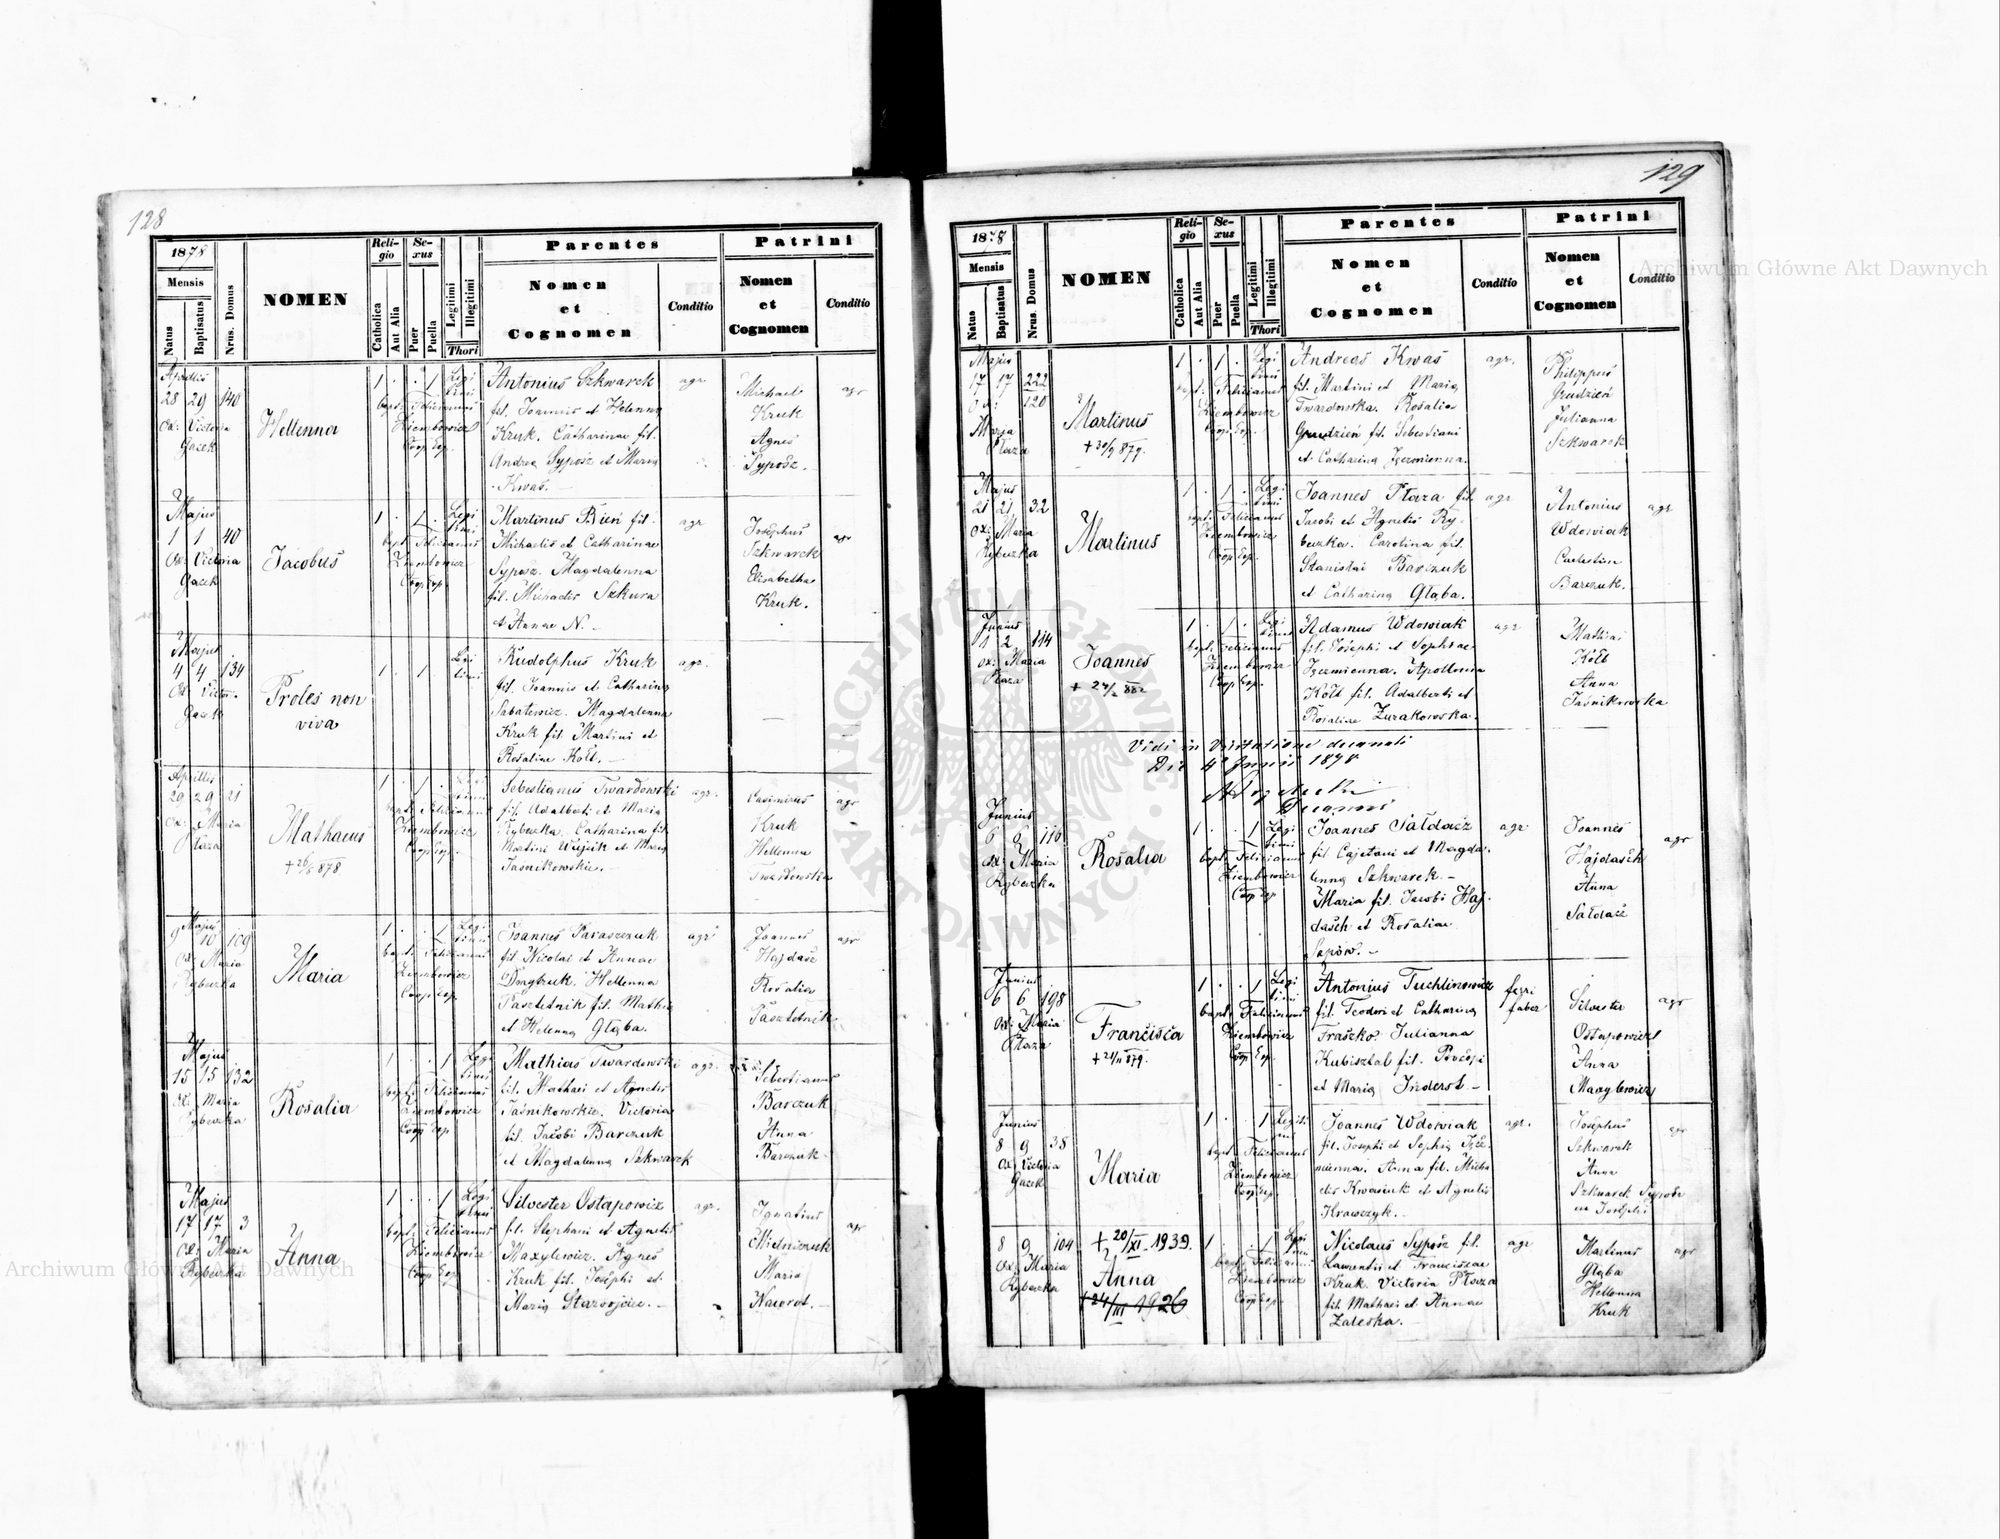 128
1878
Mensis
Natus
Baptisatus
Nrus. Domus
NOMEN
Religio
Catholica
Aut Alia
Sexus
Puer
Puella
Legitimi
Illegitimi
Thori
Parentes
Nomen
et
Cognomen
Conditio
Patrini
Nomen
et
Cognomen
Conditio
Aprilis
28 29 140
Ox: Victoria
Gacek
Hellenna
1 . . 1 Legi
timi
bapt: Felicianus
Ziembowicz
Coop Exp.
Antonius Szkwarek
fil. Joannis et Helenna
Kruk. Catharinae fil.
Andrea Syposz et Maria
Kwas.
agr
Michael
Kruk
Agnes
Syposz.
agr
Majus
1 1 40
Ox: Victoria
Gacek
Jacobus
1 . 1 . Legi
timi
bapt: Felicianus
Ziembowicz
Coop Exp.
Martinus Bień fil.
Michaelis et Catharinae
Syposz. Magdalenna
fil. Michaelis Szkura
et Annae N. –
agr
Josephus
Szkwarek
Elisabetha
Kruk.
agr
Majus
4 4 134
Ox: Victor.
Gacek
Proles non
viva
1 1 Legi
timi
Rudolphus Kruk
fil. Joannis et Catharina
Sabatowicz. Magdalenna
Kruk fil. Martini et
Rosaliae Kolt. –
agr.
—
Aprilis
29 29 21
Ox: Maria
Płaza
Mathaeus
+ 26/8 878
1 . 1 . Legi
timi
bapt: Felicianus
Ziembowicz
Coop Exp.
Sebestianus Twardowski
fil. Adalberti et Maria
Rybczka. Catharina fil.
Martini Wujcik et Maria
Jaśnikowskie.
agr.
Casimirus
Kruk
Hellenna
Twardowska
agr
Majus
9 10 109
Ox: Maria
Rybczka
Maria
1 . . 1 Legi
timi
bapt: Felicianus
Ziembowicz
Coop Exp
Joannes Paraszczuk
fil. Nicolai et Annae
Dmytruk. Hellenna
Pasztetnik fil. Mathia
et Helenna Głąba.
agr
Joannes
Hajdasz
Rosalia
Pasztetnik
agr
Majus
15 15 132
Ox: Maria
Rybczka
Rosalia
1 . . 1 Legi
timi
bapt: Felicianus
Ziembowicz
Coop Exp
Mathias Twardowski
fil. Mathaei et Agnetis
Jaśnikowskie. Victoria
fil. Jacobi Barczuk
et Magdalenna Szkwarek
agr.
Sebestianus
Barczuk
Anna
Barczuk
Majus
17 17 3
Ox: Maria
Rybczka
Anna
1 . . 1 Legi
timi
bapt: Felicianus
Ziembowicz
Coop Exp
Silvester Ostapowicz
fil. Stephani et Agnetis
Maxylewicz. Agnes
Kruk fil. Josephi et
Maria Starojciec. –
agr.
Ignatius
Mielniczuk
Maria
Nawrot. –
agr
129
1878
Mensis
Natus
Baptisatus
Nrus. Domus
NOMEN
Religio
Catholica
Aut Alia
Sexus
Puer
Puella
Legitimi
Illegitimi
Thori
Parentes
Nomen
et
Cognomen
Conditio
Patrini
Nomen
et
Cognomen
Conditio
Majus
17 17 222
Ox: 120
Maria
Płaza
Martinus
+ 30/9 879.
1 . 1 . Legi
timi
bapt: Felicianus
Ziembowicz
Coop Exp.
Andreas Kwas
fil. Martini et Maria
Twardowska. Rosalia
Grudzień fil. Sebestiani
et Catharina Jęczmienna.
agr.
Philippus
Grudzień
Julianna
Szkwarek
Majus
21 21 32
Ox: Maria
Rybczka
Martinus
1 . 1 . Legi
timi
bapt: Felicianus
Ziembowicz
Coop Exp.
Joannes Płaza fil.
Jacobi et Agnetis Ry-
bczka. Carolina fil.
Stanislai Barczuk
et Catharina Głąba.
agr
Antonius
Wdowiak
Caelestina
Barczuk.
agr
Junius
1 2 114
Ox: Maria
Płaza
Joannes
+ 24/2 882
1 . 1 . Legi
timi
bapt: Felicianus
Ziembowicz
Coop Exp.
Adamus Wdowiak
fil. Josephi et Sophiae
Jęczmienna. Apollonia
Kolt fil. Adalberti et
Rosaliae Żurakowska.
agr
Mathias
Kolt
Anna
Jaśnikowska
Vidi in Visitatione decanali
Die 4 Junii 1878
Decanus
Junius
6 9 116
Ox: Maria
Rybczka
Rosalia
1 . . 1 Legi
timi
bapt: Felicianus
Ziembowicz
Coop Exp.
Joannes Sałdacz
fil Cajetani et Magda-
lenna Szkwarek. –
Maria fil. Jacobi Haj-
dasch et Rosaliae
Sapów. –
agr
Joannes
Hajdasch
Anna
Sałdacz
agr
Junius
6 6 198
Ox: Maria
Płaza
Francisca
+ 21/11 879.
1 . . 1 Legi
timi
bapt: Felicianus
Ziembowicz
Coop Exp.
Antonius Tuchlinowicz
fil. Teodori et Catharina
Fraszko. Julianna
Kubisztal fil. Procopi
et Maria Inderst –
ferri
faber
Silvester
Ostapowicz
Anna
Maxylewicz
agr
Junius
8 9 38
Ox: Victoria
Gacek
Maria
1 . . 1 Legiti
mi
bapt: Felicianus
Ziembowicz
Coop Exp.
Joannes Wdowiak
fil. Josephi et Sophia Jęcz-
mienna. Anna fil. Micha-
elis Kwasiuk et Agnetis
Krawczyk. –
agr.
Josephus
Szkwarek
Anna
Szkwarek
agr
8 9 104
Ox: Maria
Rybczka
+ 20/XI 1939.
Anna
+ 24/III 1926
1 . . 1 Legi
timi
bapt: Felicianus
Ziembowicz
Coop Exp.
Nicolaus Syposz fil.
Laurentii et Franciscae
Kruk. Victoria Płaza
fil. Mathaei et Annae
Zaleska. –
agr
Martinus
Głąba
Hellenna
Kruk
agr
Archiwum Główne Akt Dawnych
Archiwum Główne Akt Dawnych
ARCHIWUM GŁÓWNE AKT DAWNYCH